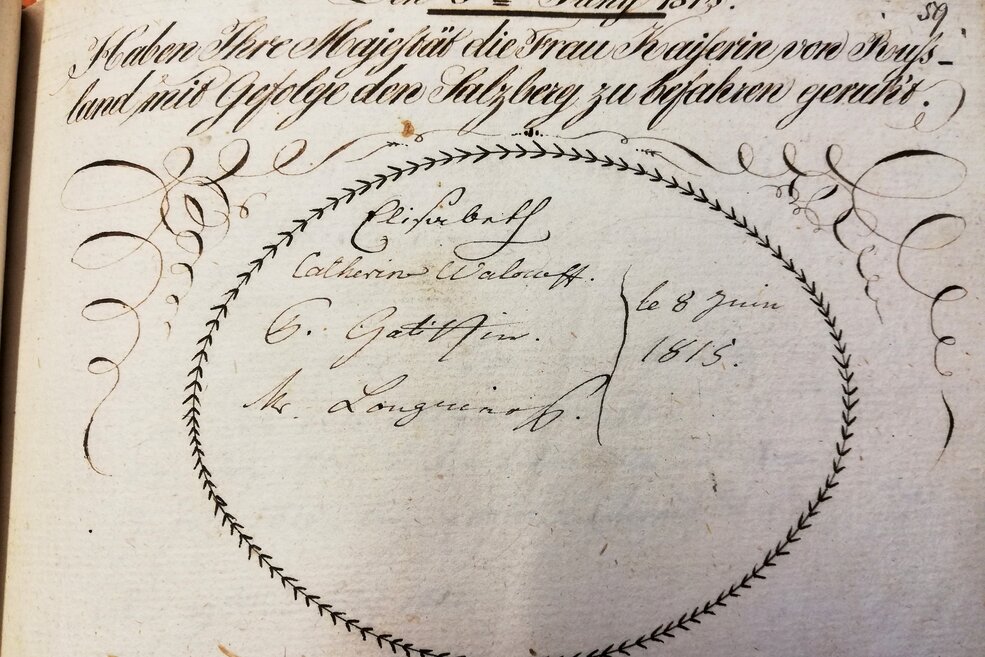 Den 8 Juny 1815.
59
Haben Ihre Majestät die Frau Kaiserin von Russ-
land, mit Gefolge den Salzberg zu befahren geruht.
Elisabeth
Catherine Waloueff.
le 8 Juin
1815.